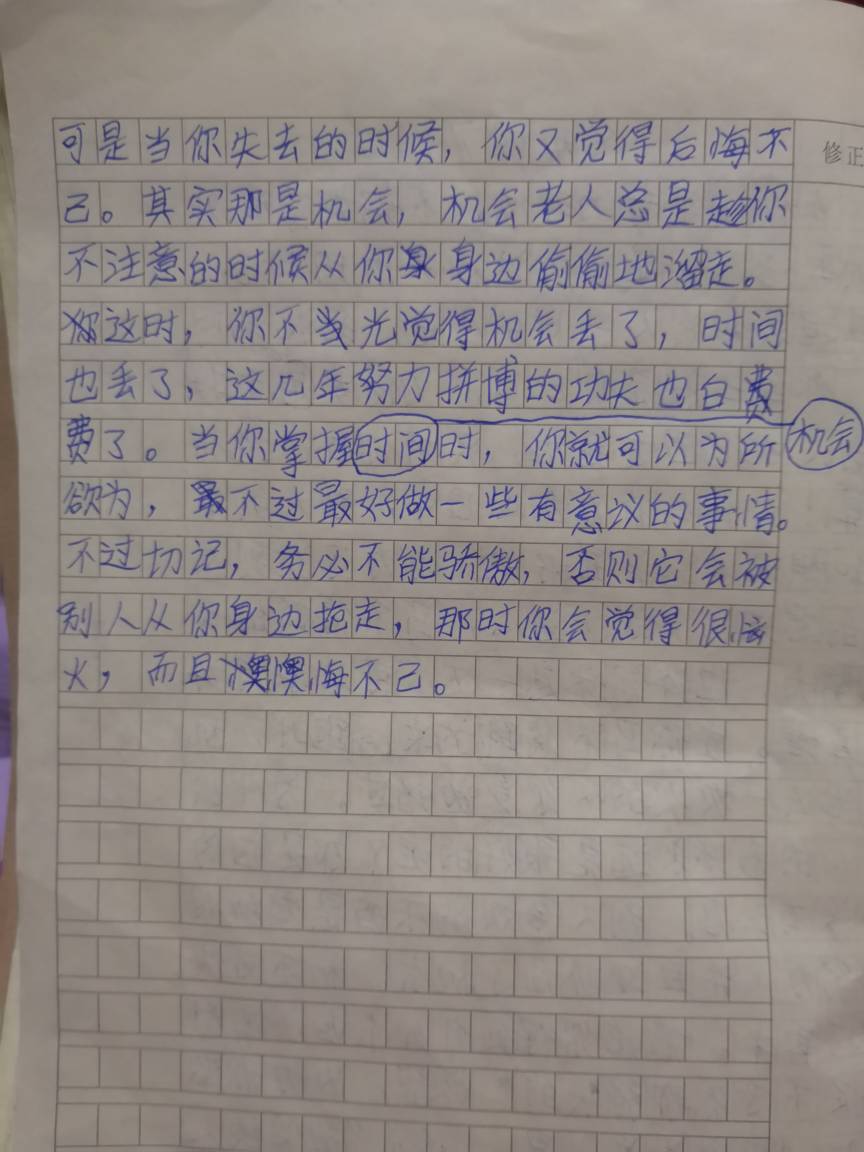 可是当你失去的时候，你又觉得后悔不
己。其实那是机会，机会老人总是趁你
不注意的时候从你身边偷偷地溜走。
这时，你不光觉得机会丢了，时间
也丢了，这几年努力拼博的功夫也白
费了。当你掌握时间时，你就可以为所
机会
欲为，不过最好做一些有意议的事情。
不过切记，务必不能骄傲，否则它会被
别人从你身边抱走，那时你会觉得很
火，而且懊悔不己。
修正